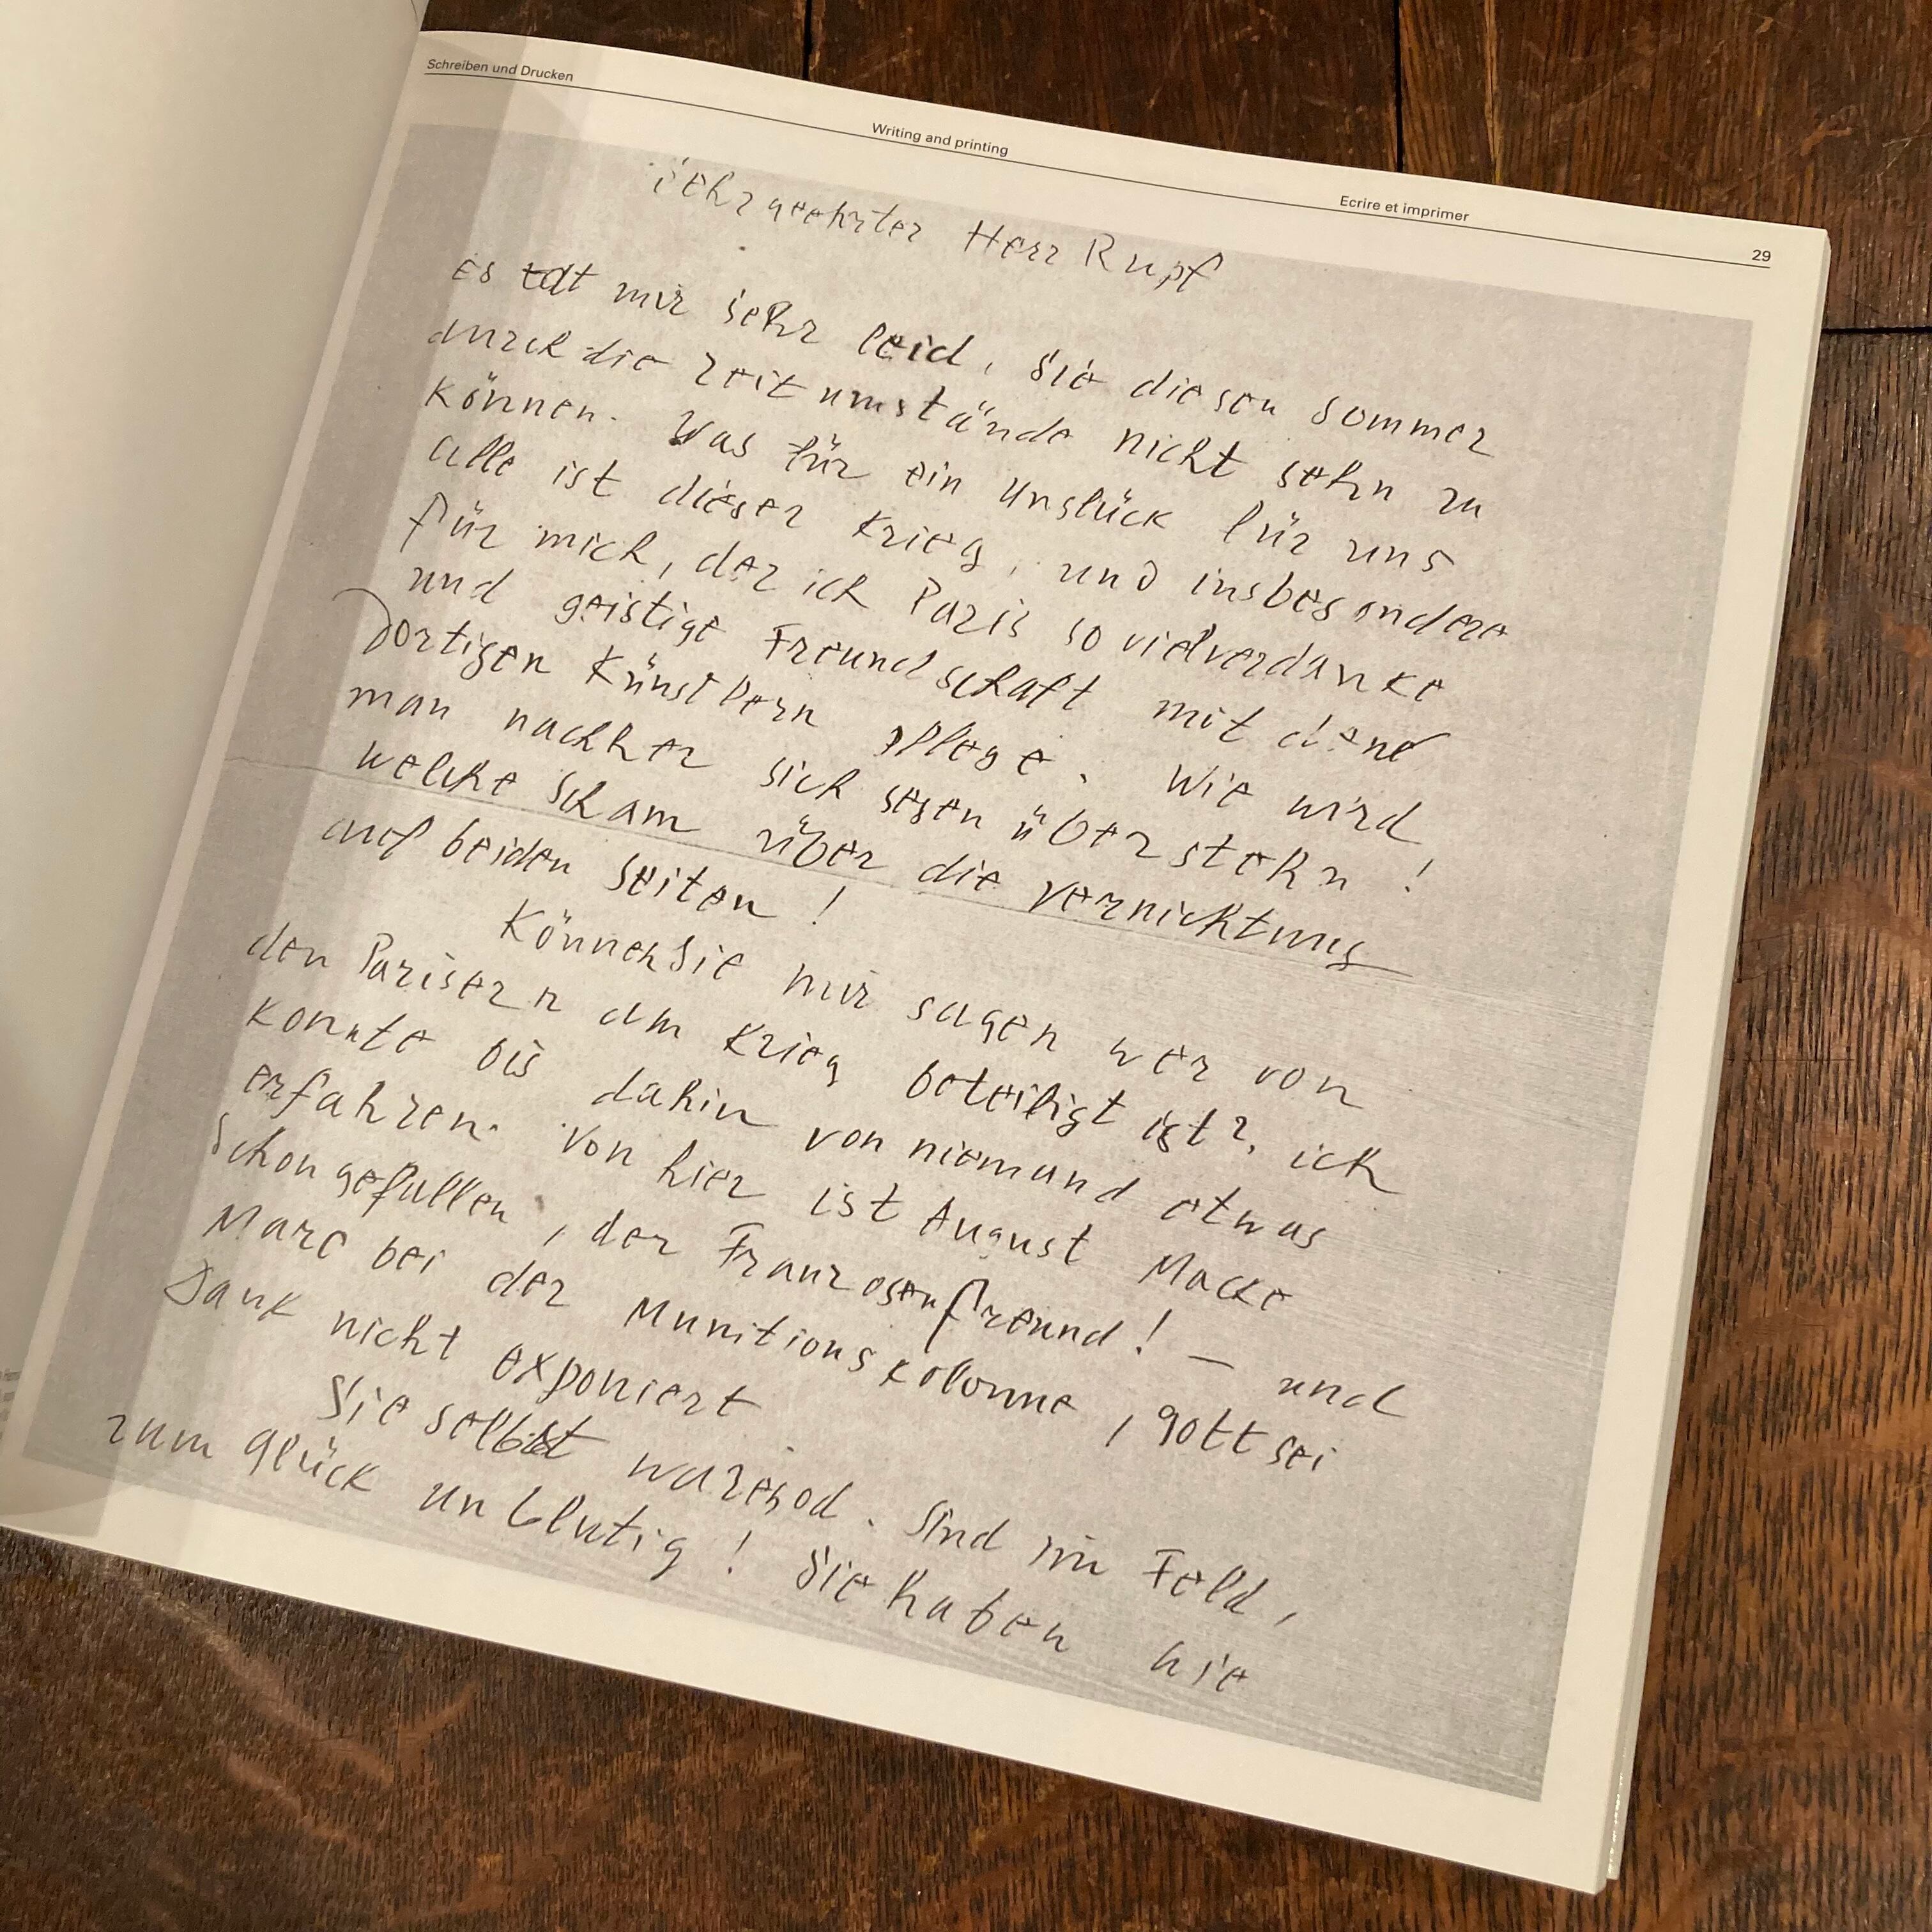 Schreiben und Drucken
Writing and printing
Ecrire et imprimer
29
Sehr geehrter Herr Rupf
es tat mir sehr leid, Sie diesen Sommer
durch die Zeitumstände nicht sehn zu
können. Was für ein Unglück für uns
alle ist dieser Krieg, und insbesondere
für mich, der ich Paris so viel verdanke
und geistige Freundschaft mit den
dortigen Künstlern pflege. Wie wird
man nachher sich gegenüberstehn!
welche Scham über die Vernichtung
auf beiden Seiten!
Können Sie mir sagen wer von
den Parisern am Krieg beteiligt ist?, ich
konnte bis dahin von niemand etwas
erfahren. Von hier ist August Macke
schon gefallen, der Franzosenfreund! — und
Marc bei der Munitionskolonne, gott sei
Dank nicht exponiert
Sie selbst waren od. sind im Feld,
zum Glück unblutig! Sie haben wie